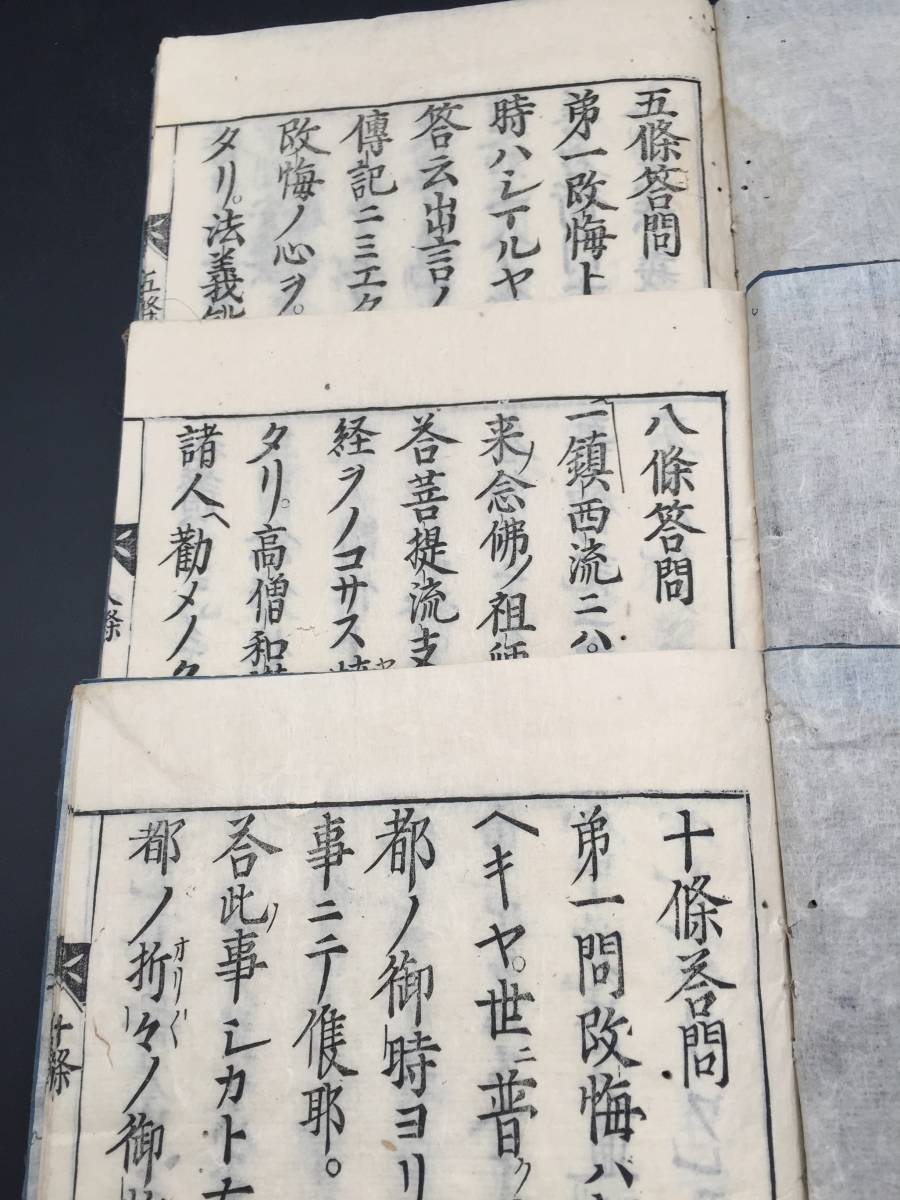 五條答問
第一改悔ト
時ハシテルヤ
答云出言ノ
傳記ニミエタ
改悔ノ心ヲ。
タリ。法義
五條
八條答問
一鎮西流ニハ。
来ノ念佛ノ祖師
荅菩提流支
経ヲノコサス
タリ。高僧和讃
諸人ヘ勸メノ
八條
十條荅問
第一問改悔ハ
ヘキヤ。世ニ普ク
都ノ御時ヨリ
事ニテ候耶。
荅此ノ事シカト
都ノ折々ノ御
オリ〱
十條